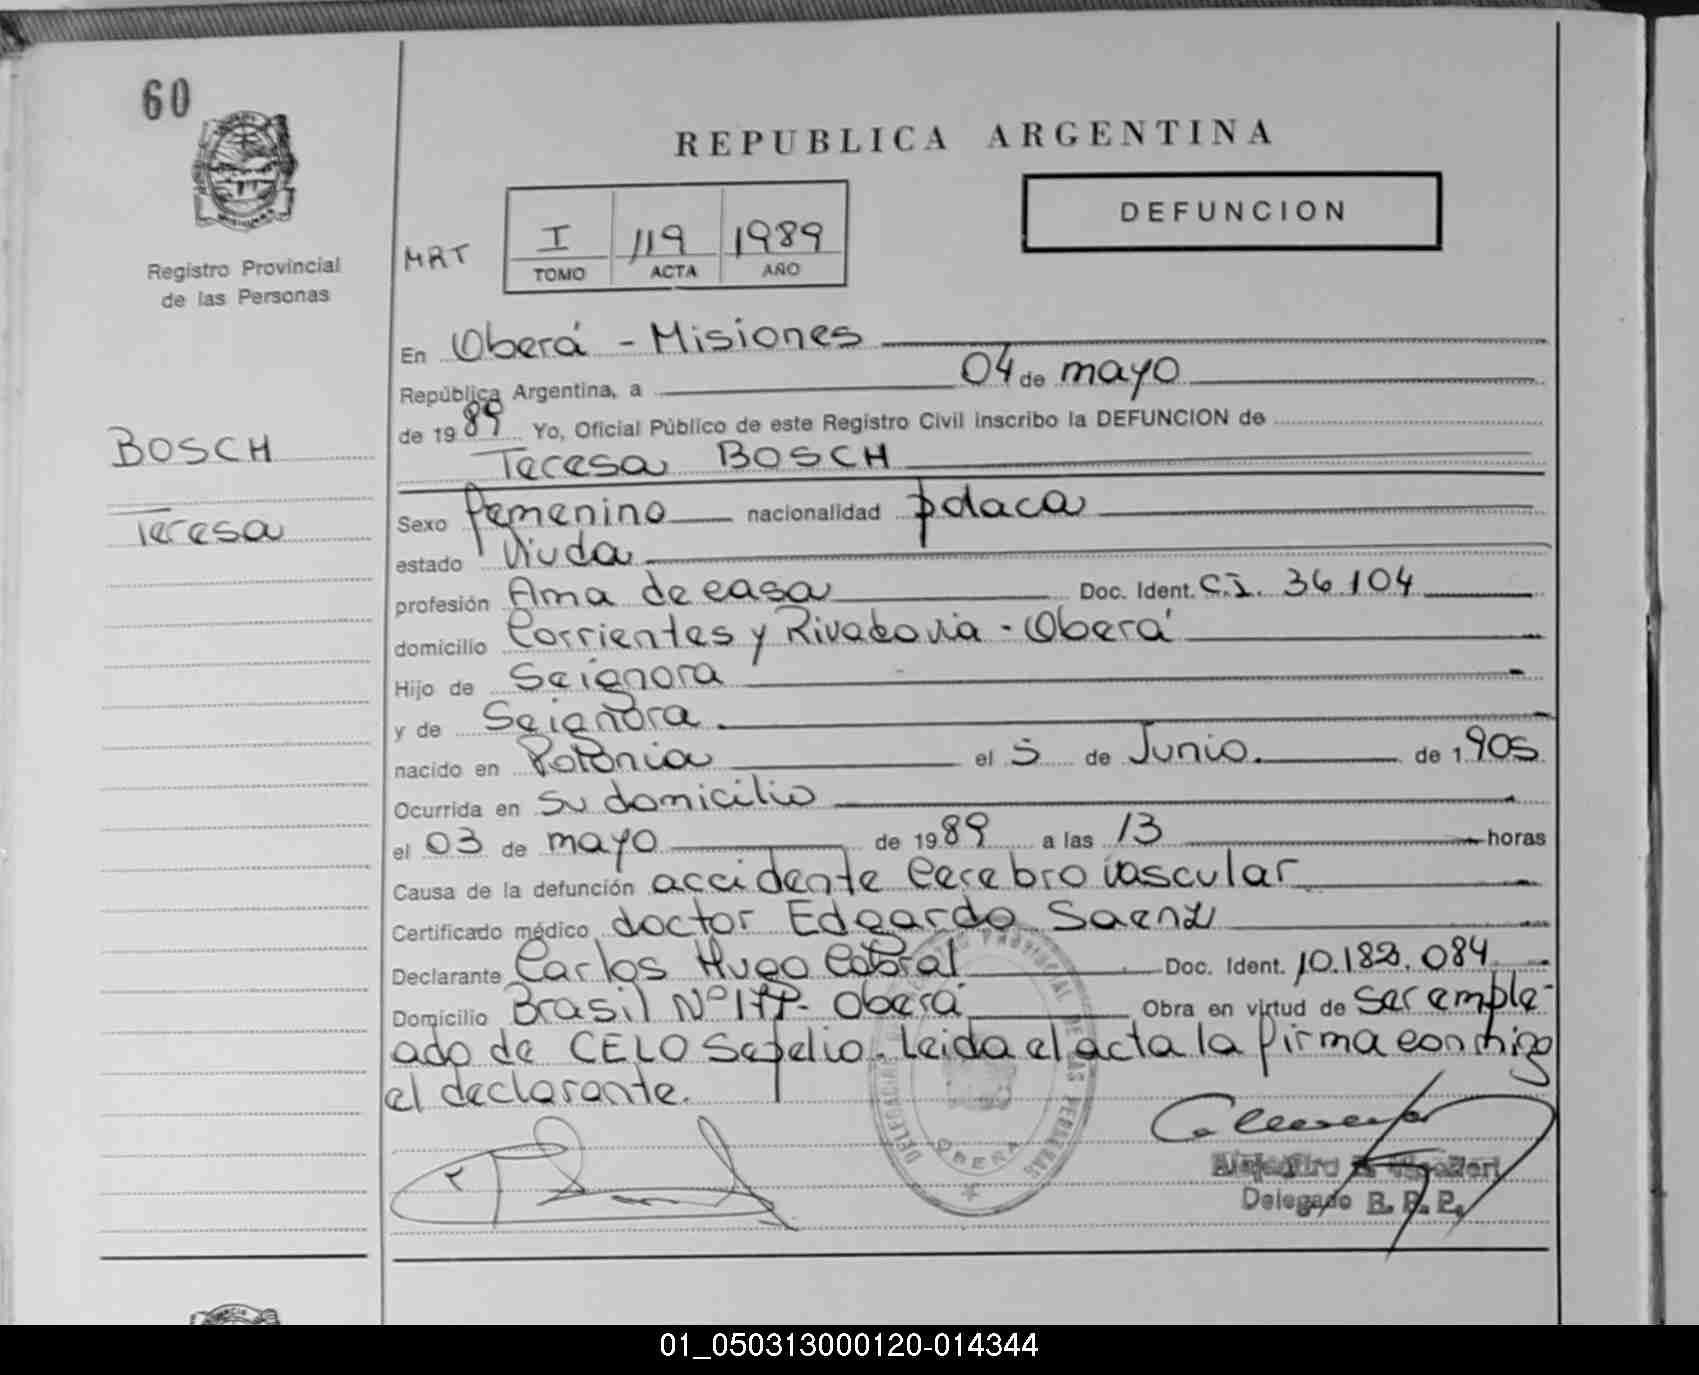 60
REPUBLICA ARGENTINA
DEFUNCION
MRT
I 119 1989
TOMO ACTA AÑO
Registro Provincial
de las Personas
En Oberá - Misiones
República Argentina, a 04 de mayo
de 1989 Yo, Oficial Público de este Registro Civil inscribo la DEFUNCION de
BOSCH
Teresa BOSCH
Teresa
Sexo femenino nacionalidad polaca
estado Viuda
profesión Ama de casa Doc. Ident. C.I. 36.104
domicilio Corrientes y Rivadavia - Oberá
Hijo de Seignora
y de Seignora
nacido en Polonia el 5 de Junio de 1905
Ocurrida en su domicilio
el 03 de mayo de 1989 a las 13 horas
Causa de la defunción accidente cerebro vascular
Certificado médico doctor Edgardo Saenz
Declarante Carlos Hugo Cabral Doc. Ident.
Domicilio Brasil Nº Oberá Obra en virtud de ser emple-
ado de CELO Sepelio. Leida el acta la firma conmigo
el declarante.
DE LAS PERSONAS
OBERA
Delegado R. P. P.
01_050313000120-014344